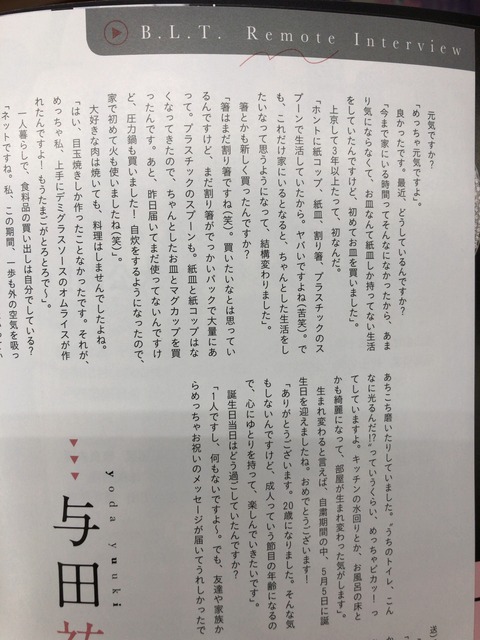 B.L.T. Remote Interview
元気ですか？
「めっちゃ元気ですよ」。
良かったです。最近、どうしているんですか？
「今まで家にいる時間ってそんなになかったから、あま
り気にならなくて、お皿なんて紙皿しか持ってない生活
をしていたんですけど、初めてお皿を買いました」。
上京して3年以上たって、初なんだ。
「ホントに紙コップ、紙皿、割り箸、プラスチックのス
プーンで生活していたから。ヤバいですよね（苦笑）。で
も、これだけ家にいるとなると、ちゃんとした生活をし
たいなって思うようになって、結構変わりました」。
箸とかも新しく買ったんですか？
「箸はまだ割り箸ですね（笑）。買いたいなとは思ってい
るんですけど、まだ割り箸がでっかいパックで大量にあ
って。プラスチックのスプーンも。紙皿と紙コップはな
くなってきたので、ちゃんとしたお皿とマグカップを買
ったんです。あと、昨日届いてまだ使ってないんですけ
ど、圧力鍋も買いました！自炊をするようになったので、
家で初めて火も使いましたね（笑）」。
大好きな肉は焼いても、料理はしませんでしたよね。
「はい、目玉焼きしか作ったことなかったです。それが、
めっちゃ私、上手にデミグラスソースのオムライスが作
れたんですよ！もうたまごがとろとろで〜」。
一人暮らしで、食料品の買い出しは自分でしている？
「ネットですね。私、この期間、一歩も外の空気を吸っ
あちこち磨いたりしていました。“うちのトイレ、こん
なに光るんだ!?”っていうくらい、めっちゃピカッーっ
てしていますよ。キッチンの水回りとか、お風呂の床と
かも綺麗になって、部屋が生まれ変わった気がします」。
生まれ変わると言えば、自粛期間の中、5月5日に誕
生日を迎えましたね。おめでとうございます！
「ありがとうございます。20歳になりました。そんな気
もしないんですけど、成人っていう節目の年齢になるの
で、心にゆとりを持って、楽しんでいきたいです」。
誕生日当日はどう過ごしていたんですか？
「1人ですし、何もないですよ〜。でも、友達や家族か
らめっちゃお祝いのメッセージが届いてうれしかったで
yoda yuuki
与田祐
送）